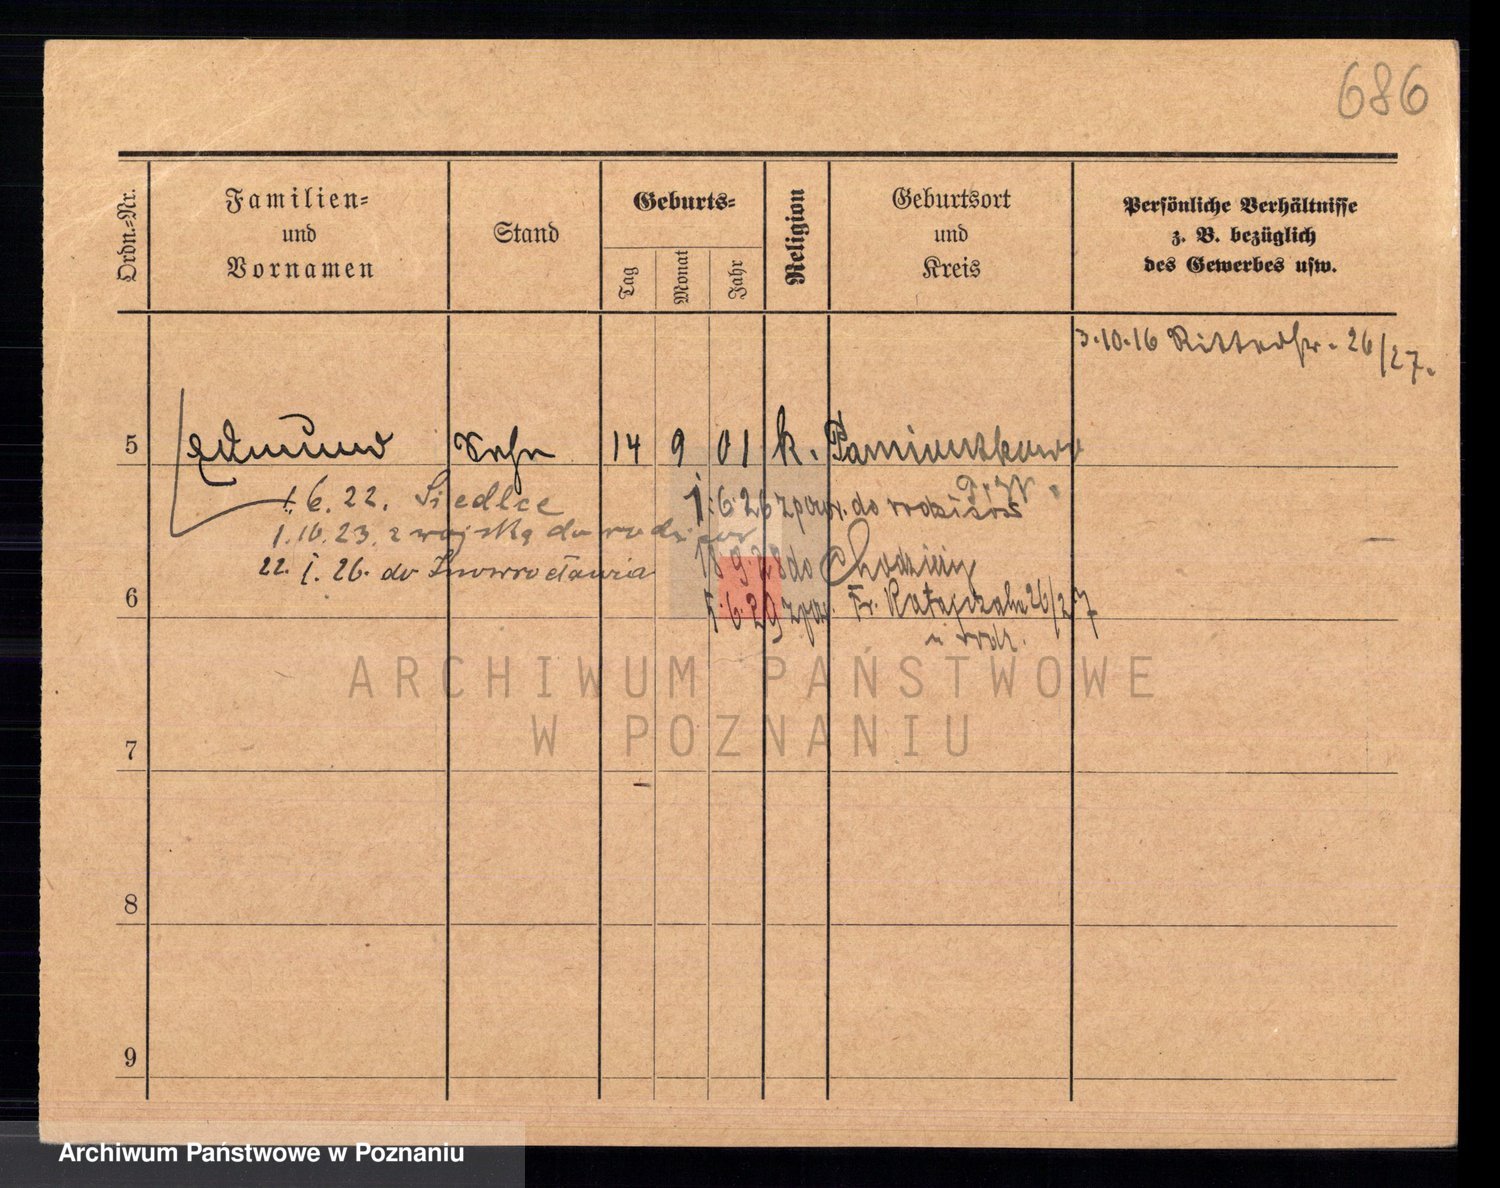 686
Ordn.-Nr.
Familien-
und
Vornamen
Stand
Geburts-
Tag
Monat
Jahr
Religion
Geburtsort
und
Kreis
Persönliche Verhältnisse
z. B. bezüglich
des Gewerbes usw.
3.10.16 Ritterstr. 26/27.
5 Edmund Sohn 14 9 01 k. Pamiontkowo
1.6.22. Siedlce
1.6.26 z pow. do rodziców
1.10.23. z wojska do rodziców
18.9.28 do Chodzieży
22. I. 26. do Inowrocławia
6
5.6.29 z pow. Fr. Ratajczaka 26/27
u rodz.
ARCHIWUM PAŃSTWOWE
W POZNANIU
7
8
9
Archiwum Państwowe w Poznaniu